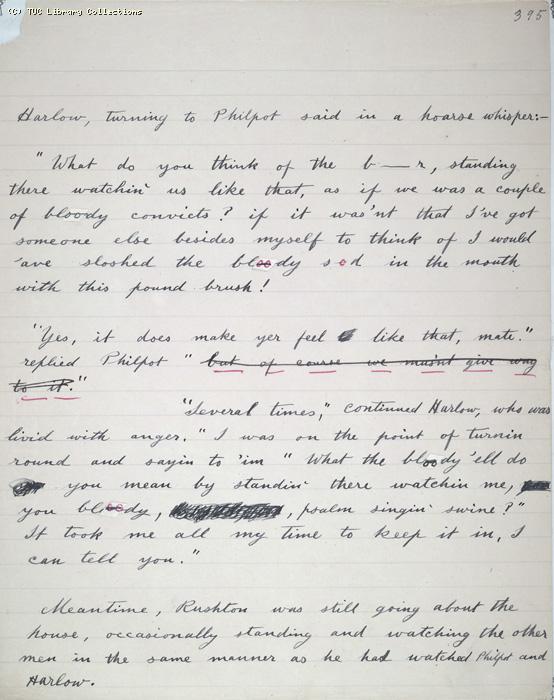 (C) TUC Library Collections
395
Harlow, turning to Philpot said in a hoarse whisper:-
"What do you think of the b—r, standing
there watchin' us like that, as if we was a couple
of bloody convicts? if it was'nt that I've got
someone else besides myself to think of I would
'ave sloshed the bloody sod in the mouth
with this pound brush!
"Yes, it does make yer feel like that, mate."
replied Philpot " but of course we mus'nt give way
to it."
"Several times," continued Harlow, who was
livid with anger. "I was on the point of turnin
round and sayin to 'im " What the bloody 'ell do
you mean by standin' there watchin me,
you bloody, , psalm singin' swine?"
It took me all my time to keep it in, I
can tell you."
Meantime, Rushton was still going about the
house, occasionally standing and watching the other
men in the same manner as he had watched Philpot and
Harlow.